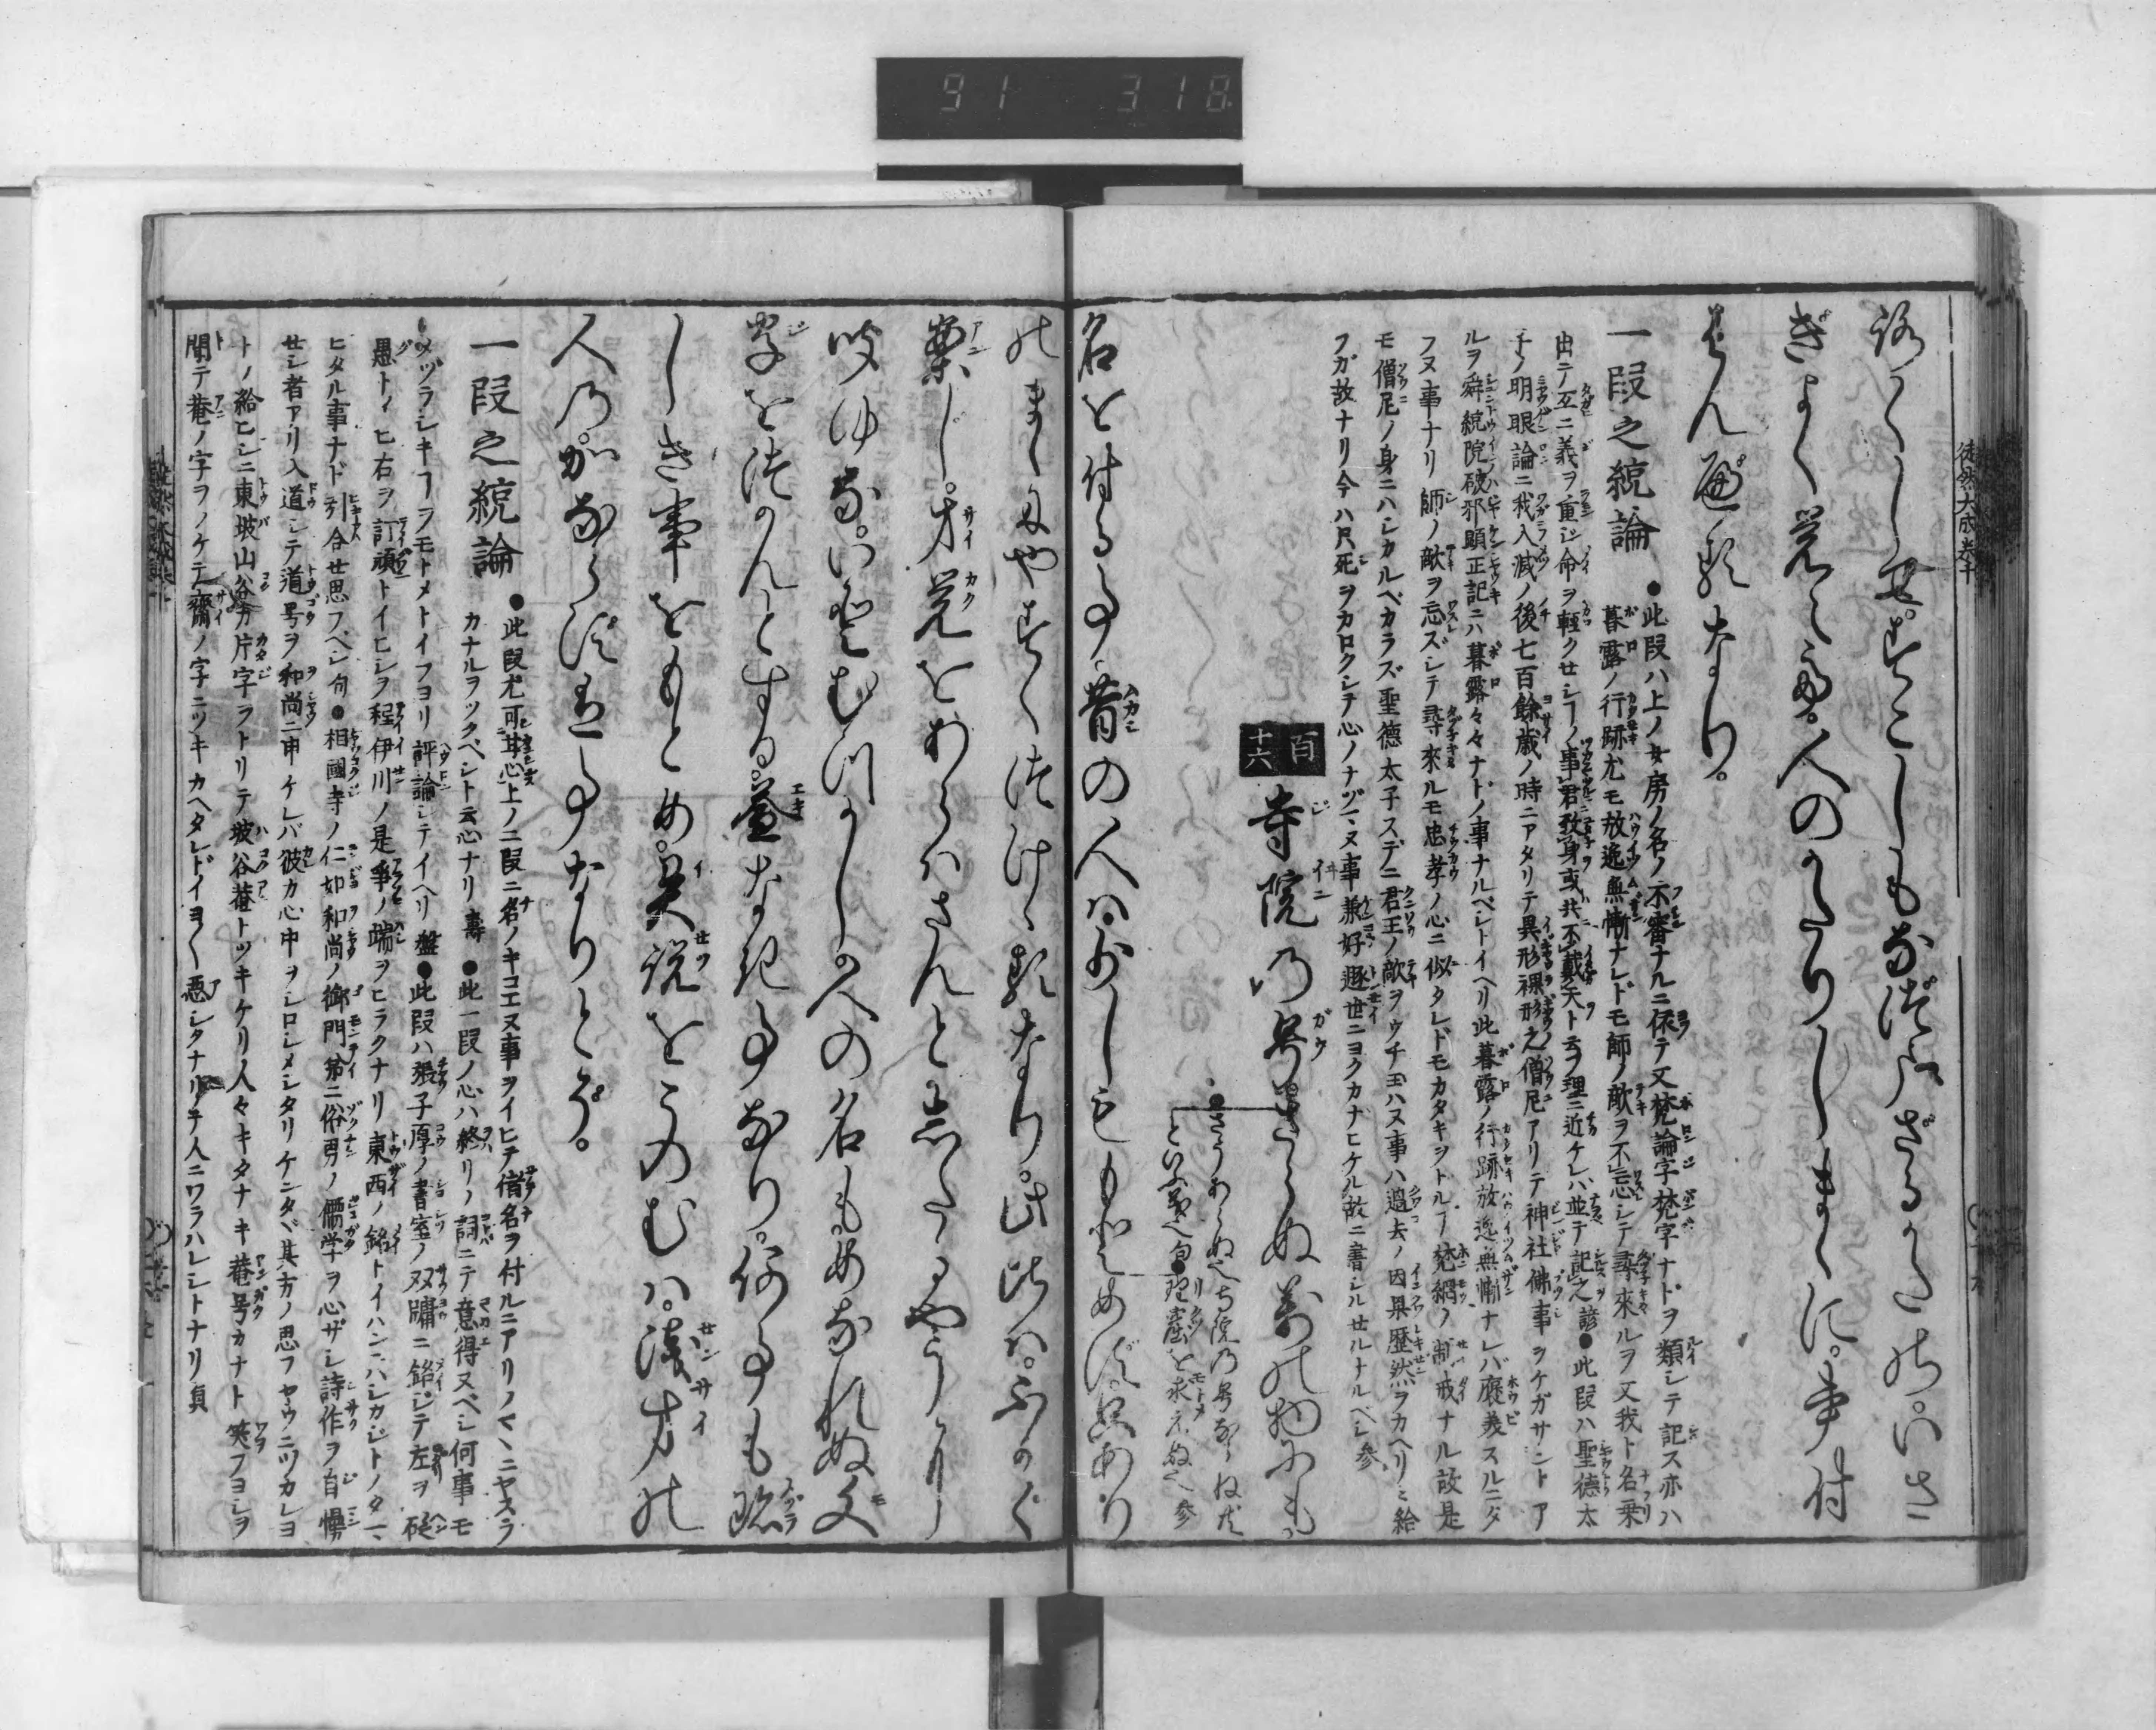 91 318
徒然大成巻十
ろかくし女。すこしもなづまざるかたの。いさ
ぎよく覚えて。人のかたりしまゝに。書付
はんべるなり。
一段之統論
●此段ハ上ノ女房ノ名ノ不審ナルニ依テ又梵論字梵字ナドヲ類シテ記ス亦ハ
暮露ノ行跡尤モ放逸無慚ナレドモ師ノ敵ヲ不忘シテ尋來ルヲ又我ト名乗
出テ互ニ義ヲ重シ命ヲ軽クセシ
事君致身或共不戴天ト云フ理ニ近ケレハ並テ記之諺●此段ハ聖徳太
子ノ明眼論ニ我入滅ノ後七百餘歳ノ時ニアタリテ異形裸形之僧尼アリテ神社佛事ヲケガサントア
ルヲ舜統院破邪顕正記ニハ暮露々々ナドノ事ナルベシトイヘリ此暮露ノ行跡放逸無慚ナレバ褒美スルニタ
フヌ事ナリ師ノ敵ヲ忘ズシテ尋來ルモ忠孝ノ心ニ似タレドモカタキヲトルハ梵網ノ制戒ナル故是
モ僧尼ノ身ニハシカルベカラズ聖徳太子スデニ君王ノ敵ヲウチ玉ハヌ事ハ過去ノ因果歴然ヲカヘリミ給
フガ故ナリ今ハ只死ヲカロクシテ心ノナヅマヌ事兼好遁世ニヨクカナヒケル故ニ書シルセルナルベシ参
百十六
寺院の号。さらぬ萬の物にも。
●さうあらぬ也寺院の号ならね共
といふ義也句●理窟を求えぬ也参
名を付る事。昔の人は。少しももとめず。只あり
のまゝにやすく付けるなり。此比は。ふかく
案じ。才覚をあらはさんとしたるやうに
聞ゆる。いとむつかし。人の名も。めなれぬ文
字をつかんとする。益なき事なり。何事も珍
しき事をもとめ。異説をこのむは。浅才の
人の。かならず有事なりとぞ。
一段之統論
●此段尤可甘心上ノ二段ニ名ノキコエヌ事ヲイヒテ偕名ヲ付ルニアリノマヽニヤスラ
カナルヲツクベシト云心ナリ壽●此一段ノ心ハ終リノ詞ニテ意得ヌベシ何事モ
メヅラシキコヲモトメトイフヨリ評論シテイヘリ盤●此段ハ張子厚ノ書室ノ双牖ニ銘シテ左ヲ砭
愚トイヒ右ヲ訂頑トイヒシヲ程伊川ノ是爭ノ端ヲヒラクナリ東西ノ銘トイハンニハシカジトノタマ
ヒタル事ナド引合セ思フベシ句●相國寺ノ仁如和尚ノ御門弟ニ俗男ノ儒学ヲ心ザシ詩作ヲ自慢
セシ者アリ入道シテ道号ヲ和尚ニ申ケレバ彼カ心中ヲシロシメシタリケンタヾ其方ノ思フヤウニツカレヨ
トノ給ヒシニ東坡山谷ガ片字ヲトリテ坡谷菴トツキケリ人々キタナキ菴号カナト笑フヨシヲ
聞テ菴ノ字ヲノケテ齋ノ字ニツキカヘタレドイヨ〱悪シクナリテ人ニワラハレシトナリ貞